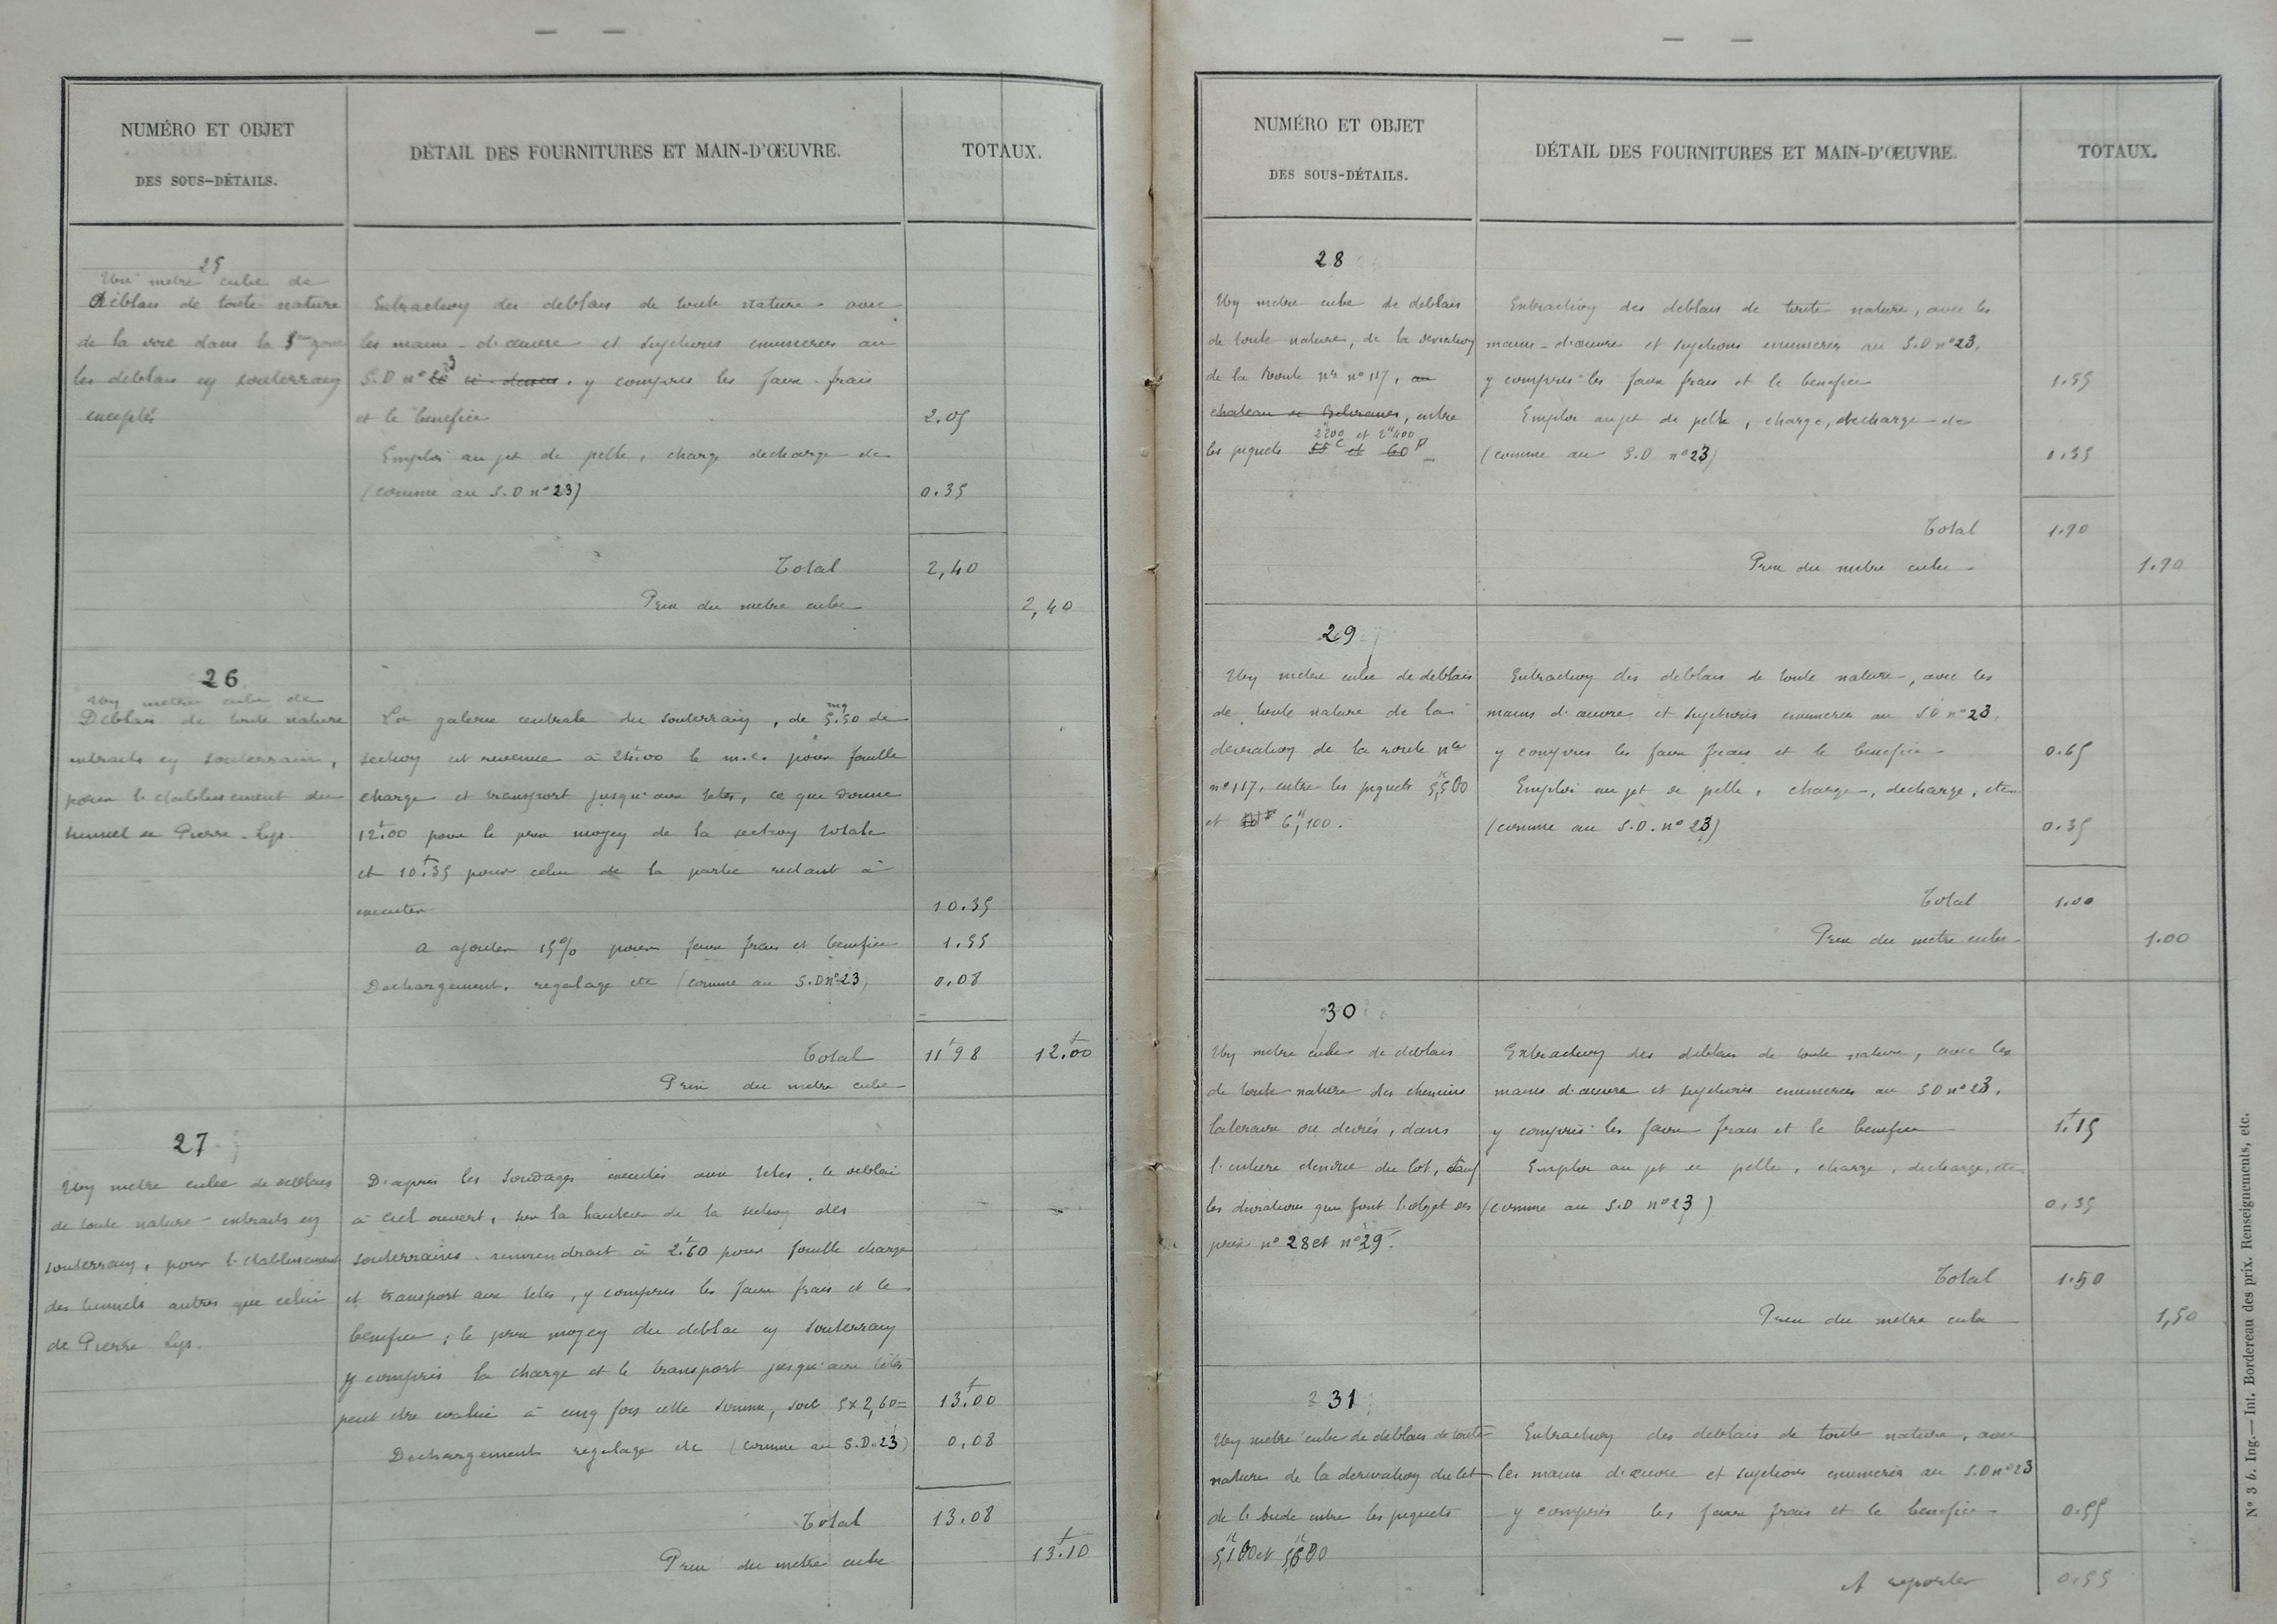 NUMÉRO ET OBJET
DES SOUS-DÉTAILS.
DÉTAIL DES FOURNITURES ET MAIN-D'ŒUVRE.
TOTAUX.
25
Un metre cube de
Déblais de toute nature
de la voie dans la 3me zone
les deblais en souterrain
exceptés
Extraction des deblais de toute nature avec
les mains-d'œuvre et sujetions enumerées au
S.D n° 23 ci-dessus, y compris les faux-frais
et le benefice 2.05
Emploi au jet de pelle, charge decharge etc
(comme au S.D n° 23) 0.35
Total 2,40
Prix du metre cube 2,40
26
Un metre cube de
Déblais de toute nature
extraits en souterrain,
pour l'etablissement du
tunnel de Pierre-Lys.
La galerie centrale du souterrain, de 5.50 mq de
section est revenue à 24f00 le m.c. pour fouille
charge et transport jusqu'aux têtes, ce que donne
12f00 pour le prix moyen de la section totale
et 10f35 pour celui de la partie restant à
executer 10.35
a ajouter 15% pour faux frais et benefice 1.55
Dechargement, regalage etc (comme au S.D n° 23) 0.08
Total 11f98 12f00
Prix du metre cube
27
Un metre cube de deblais
de toute nature extraits en
souterrain, pour l'etablissement
des tunnels autres que celui
de Pierre Lys.
D'apres les sondages executés aux têtes, le deblai
à ciel ouvert, sur la hauteur de la section des
souterrains reviendrait à 2f60 pour fouille charge
et transport aux têtes, y compris les faux frais et le
benefice; le prix moyen du deblai en souterrain
y compris la charge et le transport jusqu'aux têtes
peut etre evalué à cinq fois cette somme, soit 5x2,60= 13f00
Dechargement regalage etc (comme au S.D. 23) 0,08
Total 13.08
Prix du metre cube 13f10
NUMÉRO ET OBJET
DES SOUS-DÉTAILS.
DÉTAIL DES FOURNITURES ET MAIN-D'ŒUVRE.
TOTAUX.
28
Un metre cube de deblais
de toute nature, de la deviation
de la Route nle n° 117, au
chateau de Belvianes, entre
2k200 et 2k400
les piquets 55c et 60p
Extraction des deblais de toute nature, avec les
mains-d'œuvre et sujetions enumerées au S.D n° 23,
y compris les faux frais et le benefice 1.55
Emploi au jet de pelle, charge, decharge etc
(comme au S.D n° 23) 0.35
Total 1.90
Prix du metre cube 1.90
29
Un metre cube de deblais
de toute nature de la
deviation de la route nle
n° 117, entre les piquets 5k,500
et 6k,100.
Extraction des deblais de toute nature, avec les
mains d'œuvre et sujetions enumerées au SD n° 23,
y compris les faux frais et le benefice 0.65
Emploi au jet de pelle, charge, decharge, etc
(comme au S.D. n° 23) 0.35
Total 1.00
Prix du metre cube 1.00
30
Un metre cube de deblais
de toute nature des chemins
lateraux ou deviés, dans
l'entiere etendue du lot, sauf
les deviations que font l'objet des
prix n° 28 et n° 29.
Extraction des deblais de toute nature, avec les
mains d'œuvre et sujetions enumerées au S.D n° 23,
y compris les faux frais et le benefice 1f15
Emploi au jet de pelle, charge, decharge, etc
(comme au S.D n° 23) 0.35
Total 1.50
Prix du metre cube 1,50
31
Un metre cube de deblais de toute
nature de la derivation du lit
de l'Aude entre les piquets
Extraction des deblais de toute nature, avec
les mains d'œuvre et sujetions enumerées au S.D n° 23
y compris les faux frais et le benefice 0.55
A reporter 0.55
N° 3 b. Ing. — Int. Bordereau des prix. Renseignements, etc.